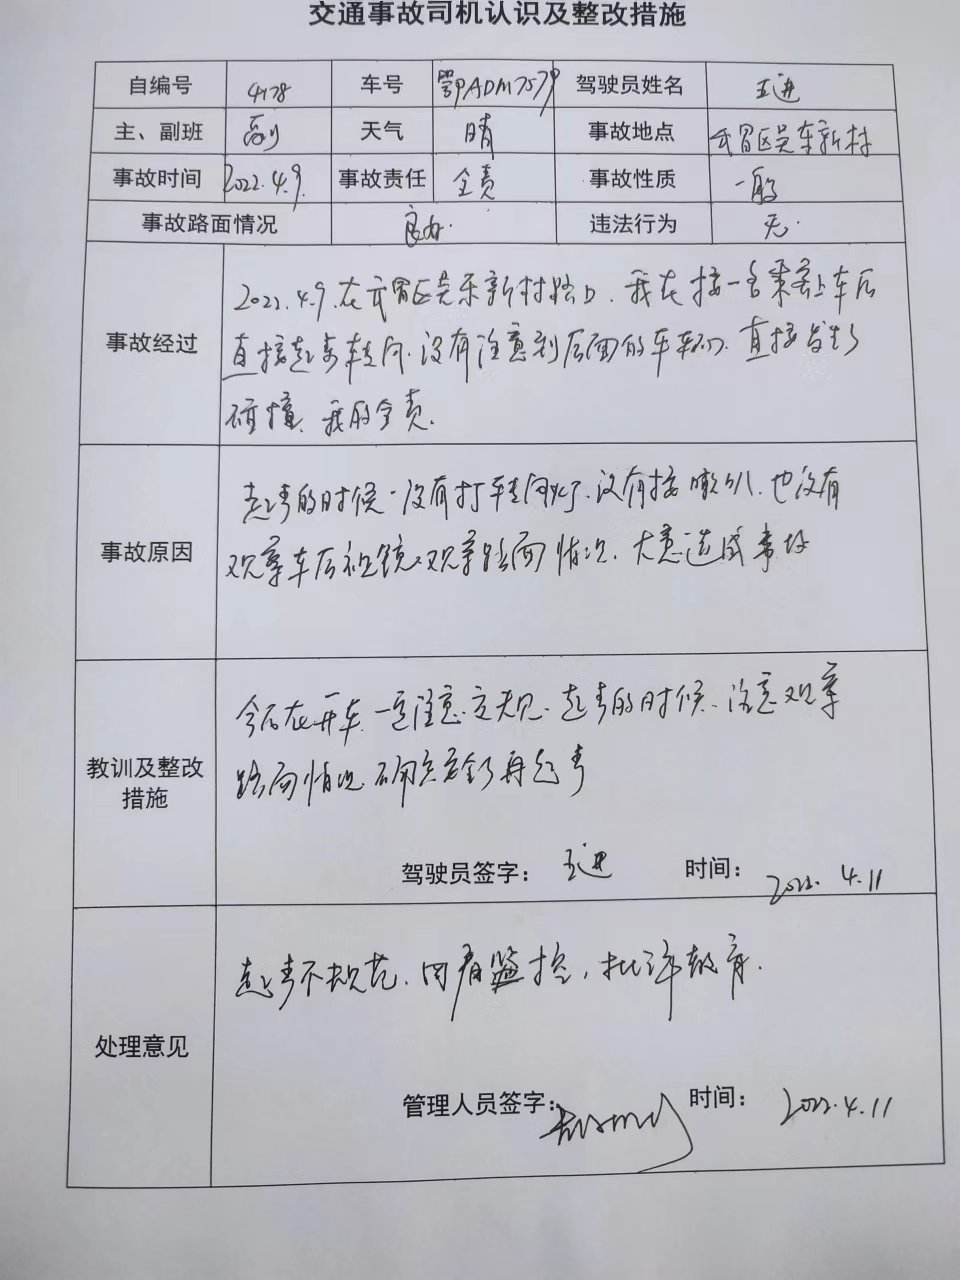 交通事故司机认识及整改措施
自编号 4178 车号 鄂ADM7579 驾驶员姓名 王进
主、副班 副 天气 晴 事故地点 武昌区吴东新村
事故时间 2022.4.9. 事故责任 全责 事故性质 一般
事故路面情况 良好. 违法行为 无.
事故经过
2022.4.9.在武昌区吴东新村路口.我在接一名乘客上车后
直接起步转向.没有注意到后面的车辆.直接发生了
碰撞.我的全责.
事故原因
起步的时候.没有打转向灯.没有按喇叭.也没有
观察车后视镜.观察路面情况.大意造成事故
教训及整改
措施
今后在开车一定注意 起步的时候.注意观察
路面情况 确定安全了再起步
驾驶员签字: 王进 时间: 2022. 4.11
处理意见
起步不规范.回看监控,批评教育.
管理人员签字: 时间: 2022.4.11